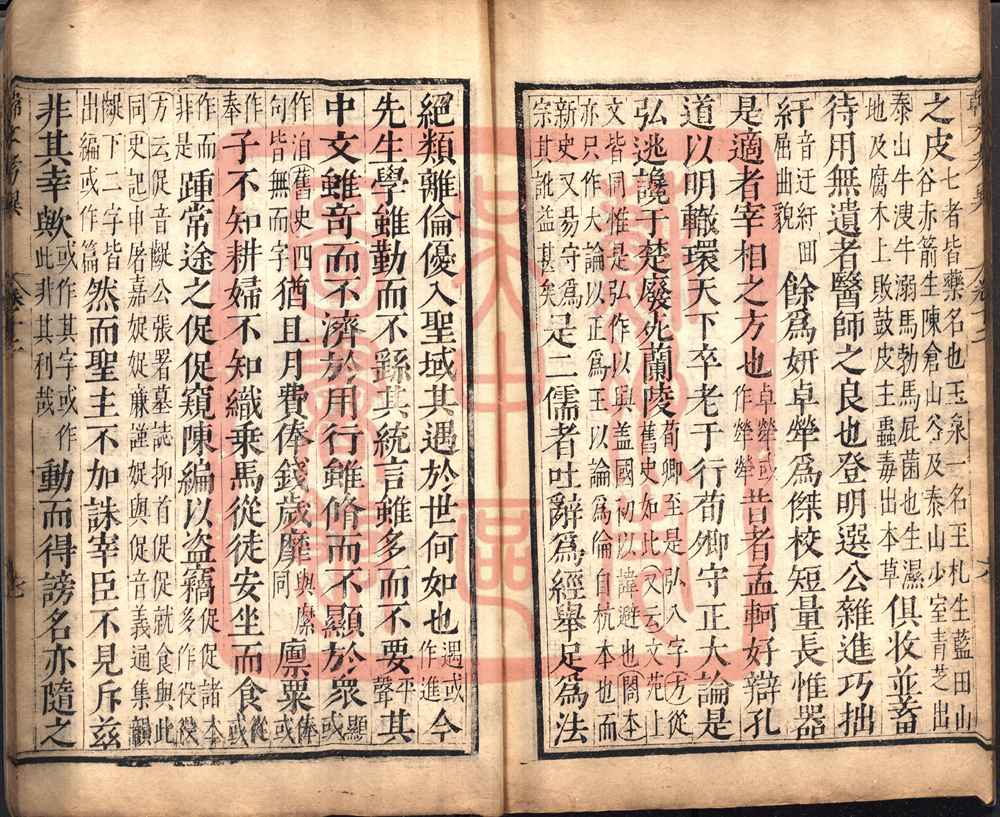 之皮七者皆藥名也玉泉一名玉札生藍田山谷赤箭生陳倉山谷及泰山少室青芝出
泰山牛溲牛溺馬勃馬屁菌也生濕地及腐木上敗鼓皮主蟲毒出本草俱收並蓄
待用無遺者醫師之良也登明選公雜進巧拙
紆音迂紆囬屈曲貌餘爲姸卓犖爲傑校短量長惟器
是適者宰相之方也卓犖或作犖犖昔者孟軻好辯孔
道以明轍環天下卒老于行荀卿守正大論是
弘逃讒于楚廢死蘭陵荀卿至是弘八字方從舊史如此又云文苑上
文皆同惟是弘作以興盖國初以諱避也閣本亦只作大論以正爲王以論爲倫自杭本也而
新史又易守爲宗其訛益甚矣是二儒者吐辭爲經舉足爲法
絕類離倫優入聖域其遇於世何如也遇或作進今
先生學雖勤而不繇其統言雖多而不要平聲其
中文雖奇而不濟於用行雖脩而不顯於衆顯或
作洎舊史四句皆無而字猶且月費俸錢歲靡與縻同廪粟俸或
作奉子不知耕婦不知織乗馬從徒安坐而食從或
作而非是踵常途之促促窺陳編以盗竊促促諸本多作役役
方云促音齪公張署墓誌抑首促促就食與此同史記申屠嘉娖娖廉謹娖與促音義通集韻
齪下二字皆出編或作篇然而聖主不加誅宰臣不見斥兹
非其幸歟或作其字或作此非其利哉動而得謗名亦隨之